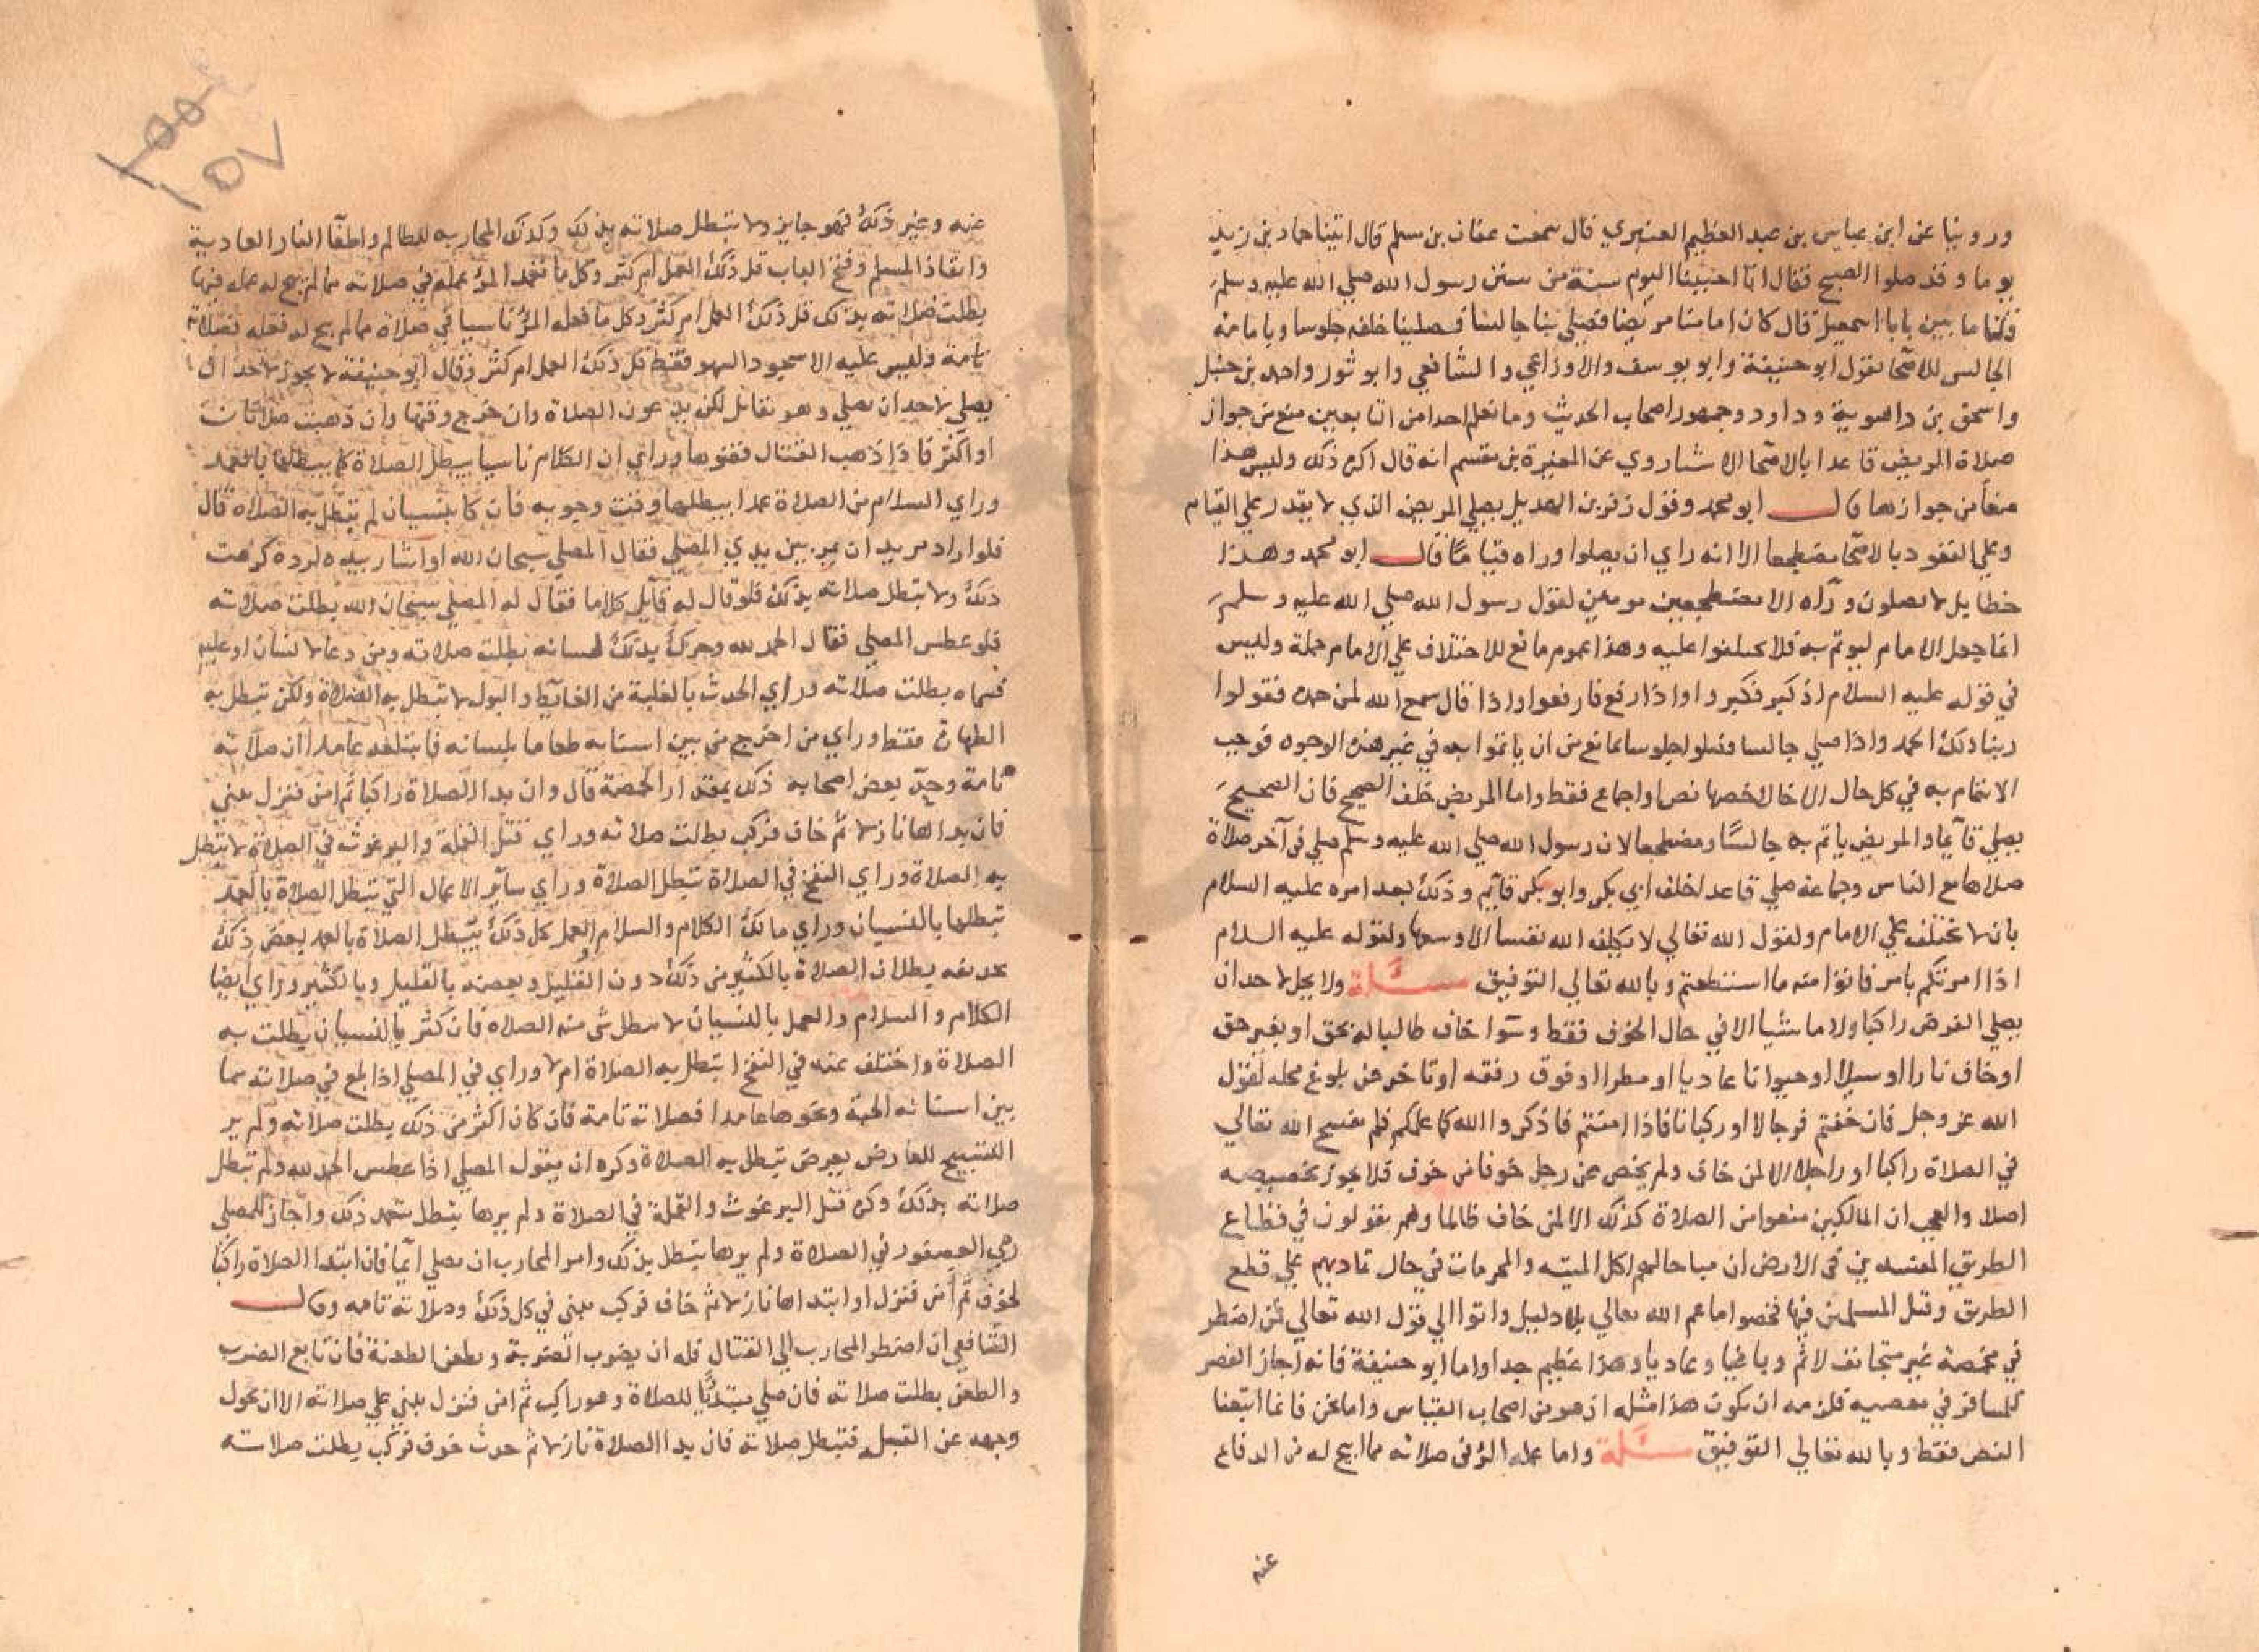 وروينا عن ابن عباس بن عبد العظيم العنبري قال سمعت عفان بن سلم قال اتينا حماد بن زيد
يوما وقد صلوا الصبح فقال انا احيينا اليوم سنة من سنن رسول الله صلي الله عليه وسلم
قلنا ما بين يابا اسمعيل قال كان امامنا مريضا فصلي بنا جالسا فصلينا خلفه جلوسا وبامامة
الجالس للاصحا نقول ابو حنيفة وابو يوسف والاوزاعي والشافعي وابو ثور واحمد بن حنبل
واسحق بن راهوية وداود وجمهور اصحاب الحديث وما نعلم احدا من التابعين منع من جواز
صلاة المريض قاعدا بالاصحا الا شيا روي عن المغيرة بن مقسم انه قال اكره ذلك وليس هذا
منعا من جوازها قال ابو محمد وقول زفر بن الهديل يصلي المريض الذي لا يقدر علي القيام
وعلي القعود بالاصحا مضطجعا الا انه راي ان يصلوا وراه قياما قال ابو محمد وهذا
خطا بل لا يصلون وراه الا مضطجعين مومين لقول رسول الله صلي الله عليه وسلم
انما جعل الامام ليوتم به فلا تختلفوا عليه وهذا عموم مانع للاختلاف علي الامام جملة وليس
في قوله عليه السلام اذ كبر فكبروا واذا رفع فارفعوا واذا قال سمع الله لمن حمده فقولوا
ربنا ولك الحمد واذا صلي جالسا فصلوا جلوسا مانع من ان ياتموا به في غير هذه الوجوه فوجب
الايتمام به في كل حال الا حال خصها نص او اجماع فقط واما المريض خلف الصحيح فان الصحيح
يصلي قآيما والمريض ياتم به جالسا ومضطجعا لان رسول الله صلي الله عليه وسلم صلي في آخر صلاة
صلاها مع الناس وجماعة صلي قاعدا خلف ابي بكر وابو بكر قآيم وذلك بعد امره عليه السلام
بان لا يختلف علي الامام ولقول الله تعالي لا يكلف الله نفسا الا وسعها ولقوله عليه السلام
اذا امرتكم بامر فاتوا منه ما استطعتم وبالله تعالي التوفيق مسئلة ولا يحل لاحد ان
يصلي الفرض راكبا ولا ماشيا الا في حال الخوف فقط وسوا خاف طالبا له بحق او بغير حق
او خاف نارا او سيلا او حيوانا عاديا او مطرا او فوت رفقه او تاخر عن بلوغ محله لقول
الله عز وجل فان خفتم فرجالا او ركبانا فاذا امنتم فاذكروا الله كما علمكم فلم يفسح الله تعالي
في الصلاة راكبا او راجلا الا لمن خاف ولم يخص عز وجل خوفا من خوف فلا يجوز تخصيصه
اصلا والعجب ان المالكيين منعوا من الصلاة كذلك الا لمن خاف ظالما وهم يقولون في قطاع
الطريق المفسدين في الارض ان مباحا لهم اكل الميتة والمحرمات في حال تماديهم علي قطع
الطريق وقتل المسلمين فيها فخصوا ما عم الله تعالي بلا دليل واتوا الي قول الله تعالي فمن اضطر
في مخمصة غير متجانف لاثم وباغيا وعاديا وهذا عظيم جدا واما ابو حنيفة فانه اجاز القصر
للمسافر في معصية فلزمه ان يكون هذا مثله اذ هو من اصحاب القياس واما نحن فانما اتبعنا
النص فقط وبالله تعالي التوفيق مسئلة واما عمله المرؤ في صلاته مما ابيح له من الدفاع
عنه
عنه وغير ذلك فهو جايز ولا تبطل صلاته بذلك وكذلك المحاربه للظالم واطفآ النار العادية
وانقاذ المسلم وفتح الباب قل ذلك العمل ام كثر وكل ما تعمد المرؤ عمله في صلاته مما لم يبح له عمله فيها
بطلت صلاته بذلك قل ذلك العمل ام كثر وكل ما فعله المرؤ ناسيا في صلاة مما لم يبح له فعله فصلاته
تامة وليس عليه الا سجود السهو فقط قل ذلك العمل ام كثر وقال ابو حنيفة لا يجوز لاحد ان
يصلي لاحد ان يصلي وهو نقاتل لكن يدعون الصلاة وان خرج وقتها وان ذهبت صلاتان
او اكثر فاذا ذهب القتال قضوها وراي ان الكلام ناسيا يبطل الصلاة كما يبطلها بالعمد
وراي السلام من الصلاة عمدا يبطلها وقت وجوبه فان كان بنسيان لم تبطل به الصلاه قال
فلو اراد مريد ان يمر بين يدي المصلي فقال المصلي سبحان الله او اشار بيده ليرده كرهت
ذلك ولا تبطل صلاته بذلك فلو قال له قآيل كلاما فقال له المصلي سبحان الله بطلت صلاته
فلو عطس المصلي فقال الحمد لله وحرك بذلك لسانه بطلت صلاته ومن دعا لانسان او عليه
فسماه بطلت صلاته وراي الحدث بالغلبة من الغآيط والبول لا تبطل به الصلاة ولكن تبطل به
الطهارة فقط وراي من اخرج من بين اسنانه طعاما بلسانه فابتلعه عامدا ان صلاته
تامة وحد بعض اصحابه ذلك بمقدار الحمصة قال وان بدا الصلاة راكبا ثم امن فنزل بني
فان بداها نازلا ثم خاف فركب بطلت صلاته وراي قتل القملة والبرغوث في الصلاة لا تبطل
به الصلاة وراي النفخ في الصلاة تبطل الصلاة وراي سآير الاعمال التي تبطل الصلاة بالعمد
تبطلها بالنسيان وراي مالك الكلام والسلام العمل كل ذلك يبطل الصلاة بالعمد بعض ذلك
بطلان الصلاة بالكثير من ذلك دون القليل وبعضه بالقليل وبالكثير وراي ايضا
الكلام والسلام والعمل بالنسيان لا يبطل شي منه الصلاه فان كثر بالنسيان بطلت به
الصلاة واختلف عنه في النفخ اتبطل به الصلاة ام لا وراي في المصلي اذا بلع في صلاته مما
بين اسنانه الحبة ونحوها عامدا فصلاته تامة فان كان اكثر من ذلك بطلت صلاته ولم ير
التسبيح للعارض يعرض تبطل به الصلاة وكره ان يقول المصلي اذا عطس الحمد لله ولم تبطل
صلاته بذلك وكره قتل البرغوث والقملة في الصلاة ولم يرها تبطل بتعمد ذلك واجاز للمصلي
رمي العصفور في الصلاة ولم يرها تبطل بذلك وامر المحارب ان يصلي ايما فان ابتدا الصلاة راكبا
لخوف ثم امن فنزل او ابتداها نازلا ثم خاف فركب بني في كل ذلك وصلاته تامه وقال
الشافعي ان اضطر المحارب الي القتال فله ان يضرب الضربة ويطعن الطعنة فان تابع الضرب
والطعن بطلت صلاته فان صلي مبتديا للصلاة وهو راكب ثم امن فنزل بني علي صلاته الا ان يحول
وجهه عن القبله فتبطل صلاته فان بدا الصلاة نازلا ثم حدث خوف فركب بطلت صلاته